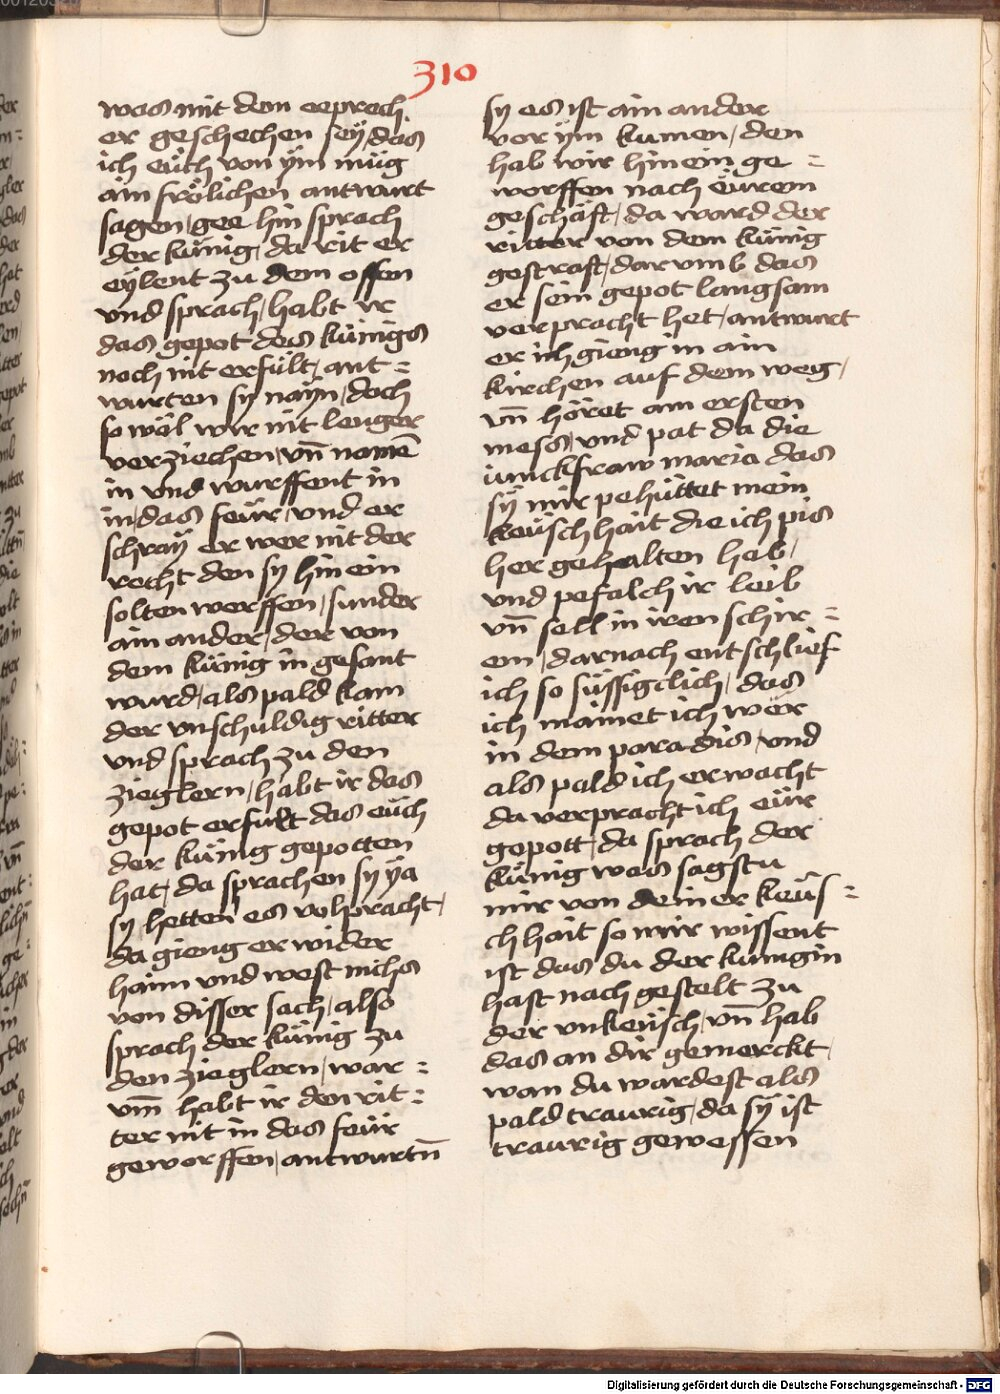 310
was mit dem eeprech
er geschechen seÿ das
ich euch von ÿm müg
ain frölichen antwurt
sagen / gee hin sprach
der künig / da rit er
eÿlent zu dem offen
vnd sprach / habt ir
das gepot des künigs
noch nit erfült / ant =
wurten sy naÿn / doch
so wöl wir nit lenger
verziechen / vn̄ namē
in vnd wurffent in
in / das feür / vnd er
schraÿ er wer nit der
recht den sy hin ein
solten werffen / sunder
ain ander / der von
dem künig in gesant
wurd / als pald kam
der vnschuldig ritter
vnd sprach zu den
zieglern / habt ir das
gepot erfult das eüch
der künig gepotten
hat / da sprachen sy ÿa
sy hetten es volpracht /
da gieng er wider
haim vnd west nichs
von disser sach / also
sprach der künig zu
den zieglern / war =
vm̄ habt ir den rit =
ter nit in das feür
geworffen / antwurtn̄
sy es ist ain ander
vor ÿm kumen / den
hab wir hin ein ge =
worffen nach eürem
geschäft / da ward der
ritter von dem künig
gestraft / dar vmb das
er sein gepot langsam
verpracht het / antwurt
er ich gieng in ain
kirchen auf dem weg /
vn̄ höret am ersten
mess / vnd pat da die
iunckfraw maria das
sÿ mir pehüttet mein
keüschhait die ich pis
her gehalten hab /
vnd pefalch ir leib
vn̄ sell in iren schir =
em / darnach entschlief
ich so süssigclich / das
ich mainet ich wer
in dem paradis / vnd
als pald ich erwacht
da verpracht ich eür
gepott / da sprach der
künig was sagstu
mir von deiner keüs =
chhait so wir wissent
ist das du der künigin
hast nach gestelt zu
der vnkeüsch / vn̄ hab
das an dir gemerckt /
wan du wardest als
pald traurig / da sÿ ist
traurig gewessen
Digitalisierung gefördert durch die Deutsche Forschungsgemeinschaft - DFG